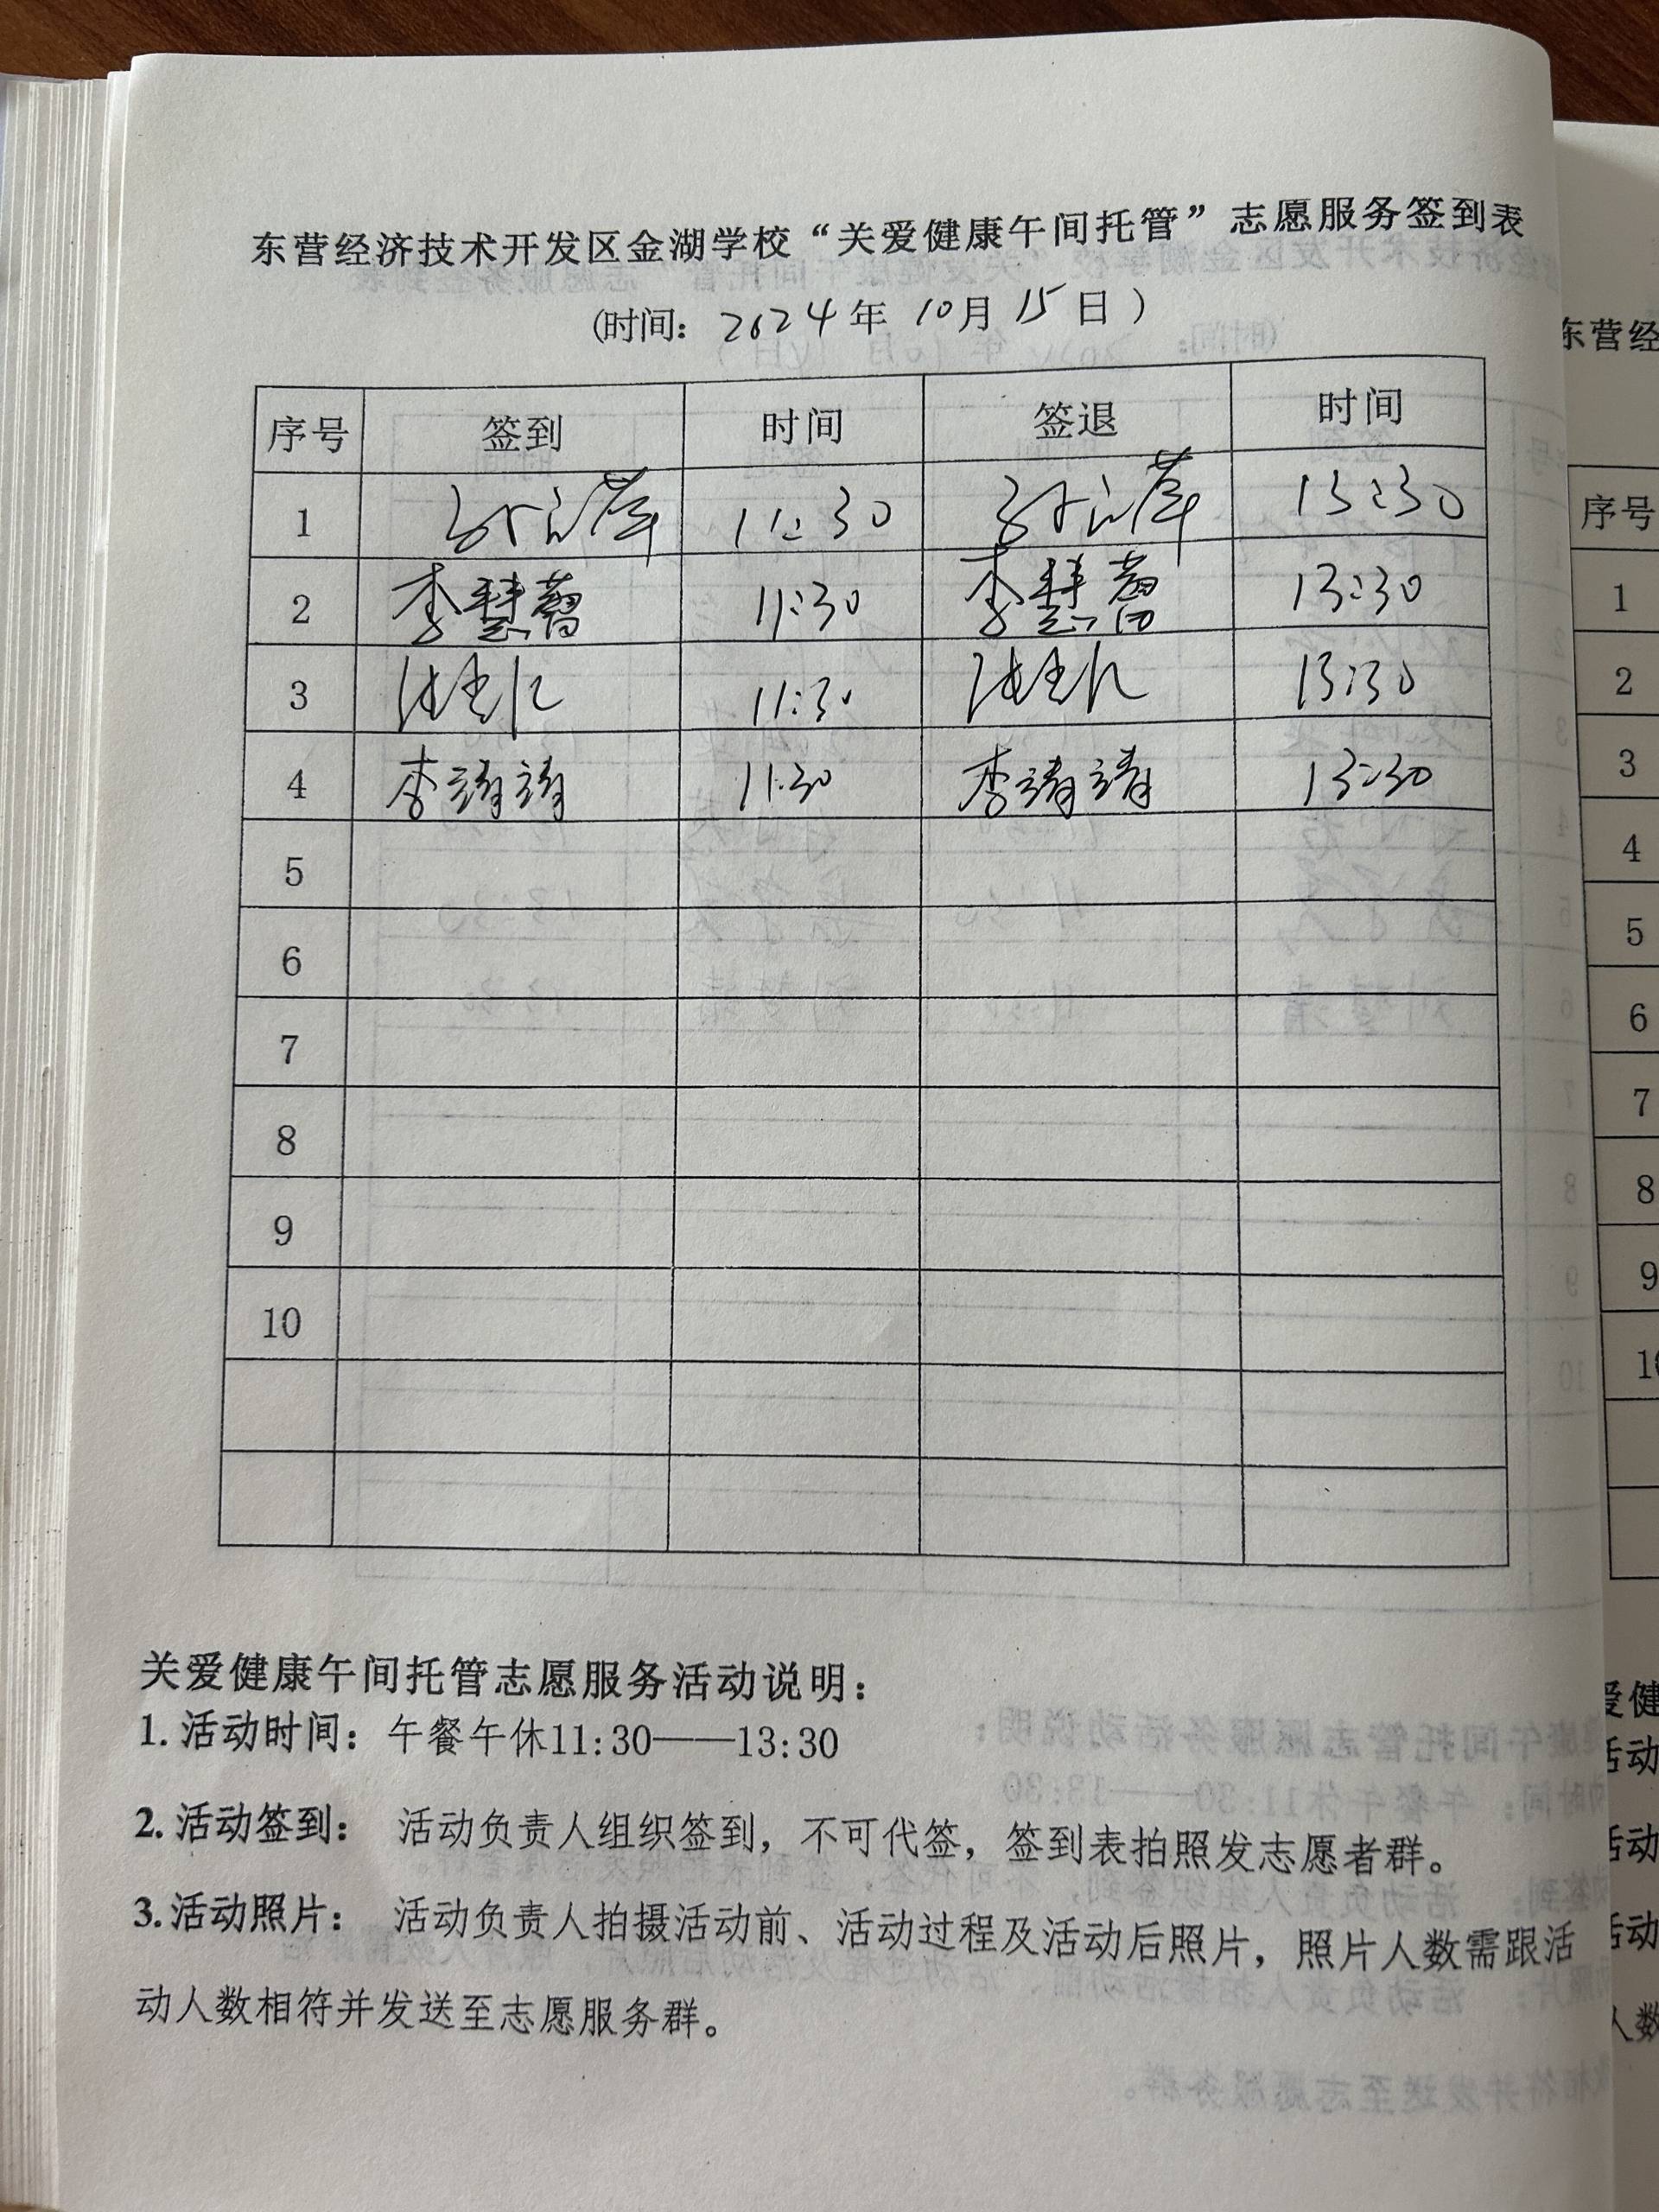 东营经济技术开发区金湖学校“关爱健康午间托管”志愿服务签到表
(时间: 2024年 10月 15日 )
序号 签到 时间 签退 时间
1 11:30 13:30
2 李慧 11:30 李慧 13:30
3 11:30 13:30
4 李靖靖 11:30 李靖靖 13:30
5
6
7
8
9
10
关爱健康午间托管志愿服务活动说明:
1. 活动时间: 午餐午休11:30——13:30
2. 活动签到: 活动负责人组织签到, 不可代签, 签到表拍照发志愿者群。
3. 活动照片: 活动负责人拍摄活动前、活动过程及活动后照片, 照片人数需跟活
动人数相符并发送至志愿服务群。
东营经
序号
1
2
3
4
5
6
7
8
9
10
爱健
活动
活动
活动
人数